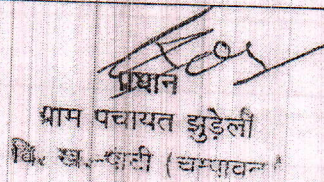 प्रधान
ग्राम पंचायत झुड़ेली
वि. ख. पाटी (चम्पावत)